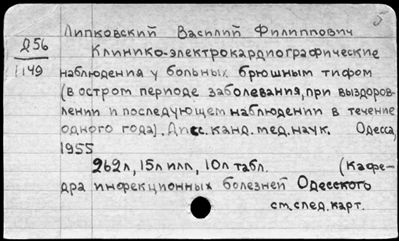 Липковский Василий Филиппович
Д56
1149
Клинико-электрокардиографические
наблюдения у больных брюшным тифом
(в остром периоде заболевания, при выздоров-
лении и последующем наблюдении в течение
одного года). Дисс. канд. мед. наук. Одесса,
1955
262л, 15л илл, 10л табл. (Кафе-
дра инфекционных болезней Одесского
см. след. карт.